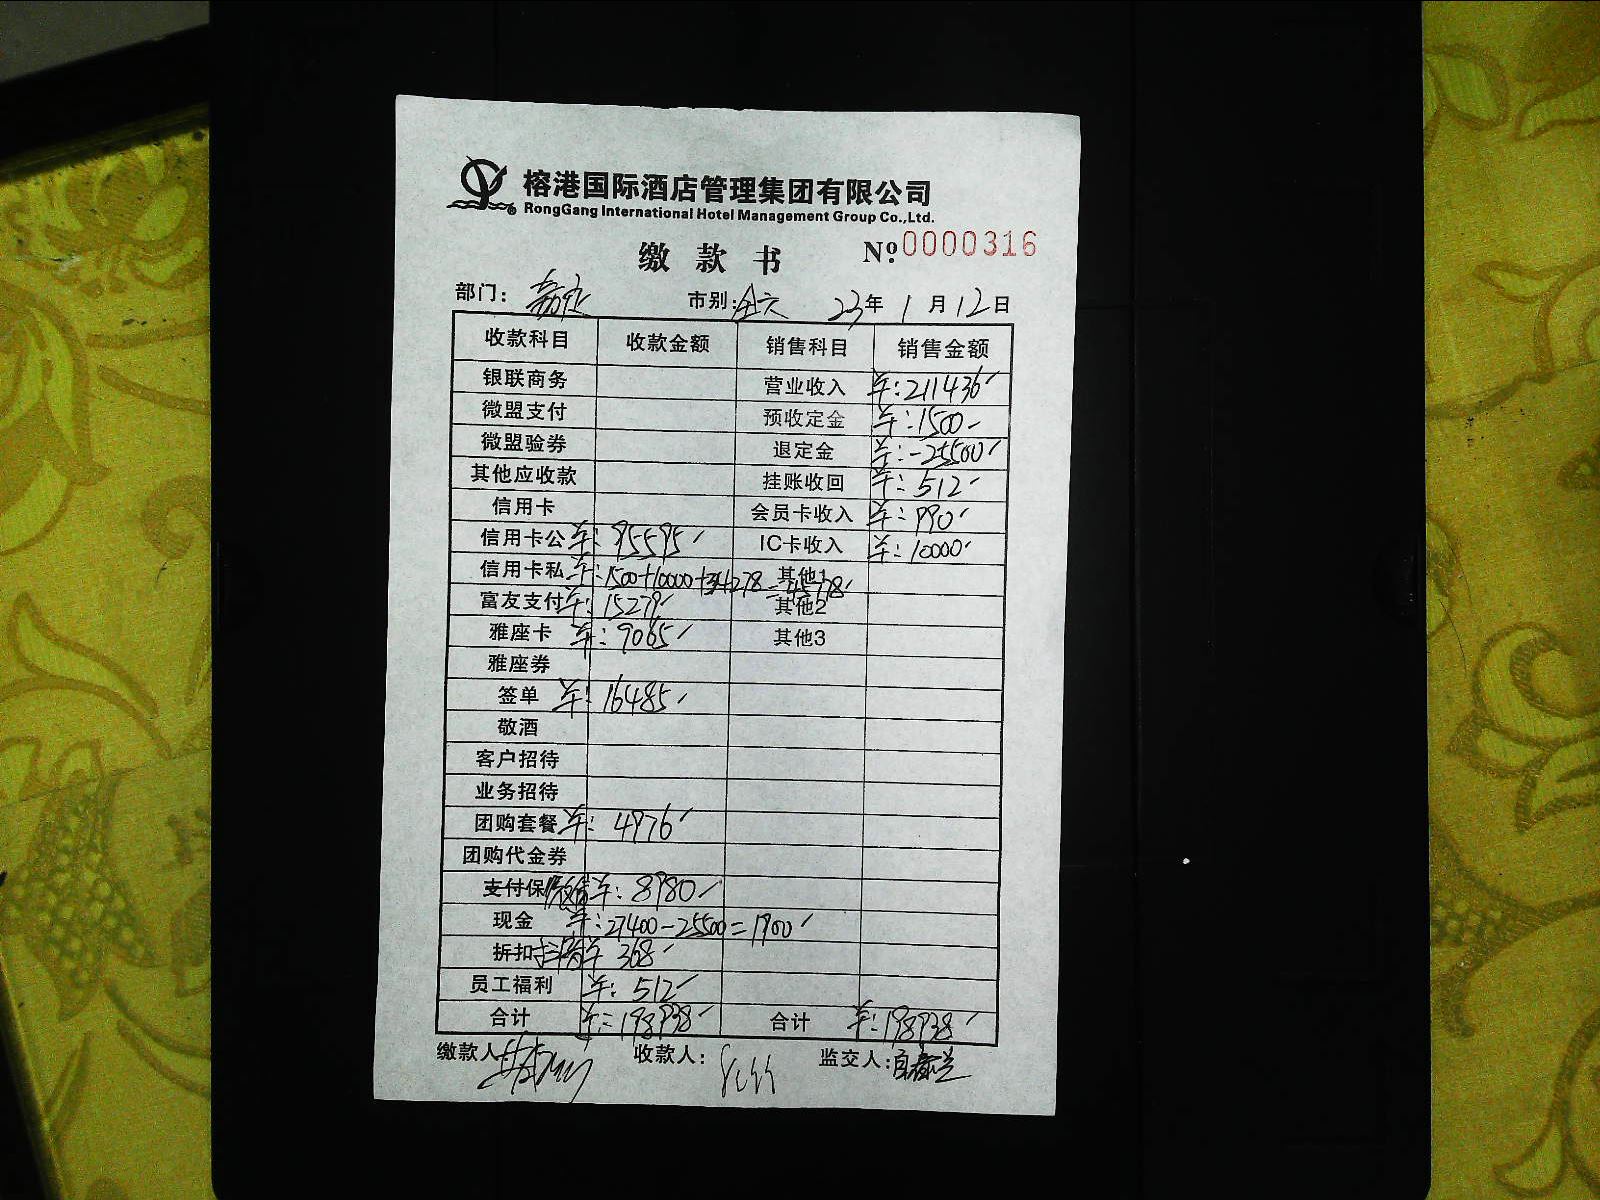 榕港国际酒店管理集团有限公司
RongGang International Hotel Management Group Co.,Ltd.
缴款书 Nº 0000316
部门: 嘉定 市别: 23年 1月12日
收款科目 收款金额 销售科目 销售金额
银联商务 营业收入 ¥:211436
微盟支付 预收定金 ¥:1500
微盟验券 退定金 ¥:-25500
其他应收款 挂账收回 ¥:512
信用卡 会员卡收入 ¥:990
信用卡公 ¥:95595 IC卡收入 ¥:10000
信用卡私 ¥:1500+10000+34278=45778 其他1
富友支付 ¥:15279 其他2
雅座卡 ¥:9065 其他3
雅座券
签单 ¥:16485
敬酒
客户招待
业务招待
团购套餐 ¥:4976
团购代金券
支付保 微信 ¥:8980
现金 ¥:27400-25500=1900
折扣 抖音 ¥ 368
员工福利 ¥:512
合计 ¥:198938 合计 ¥:198938
缴款人 收款人: 监交人: